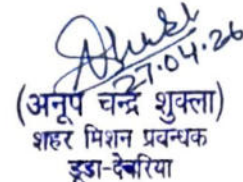 27.04.26
(अनूप चन्द्र शुक्ला)
शहर मिशन प्रबन्धक
डूडा-देवरिया